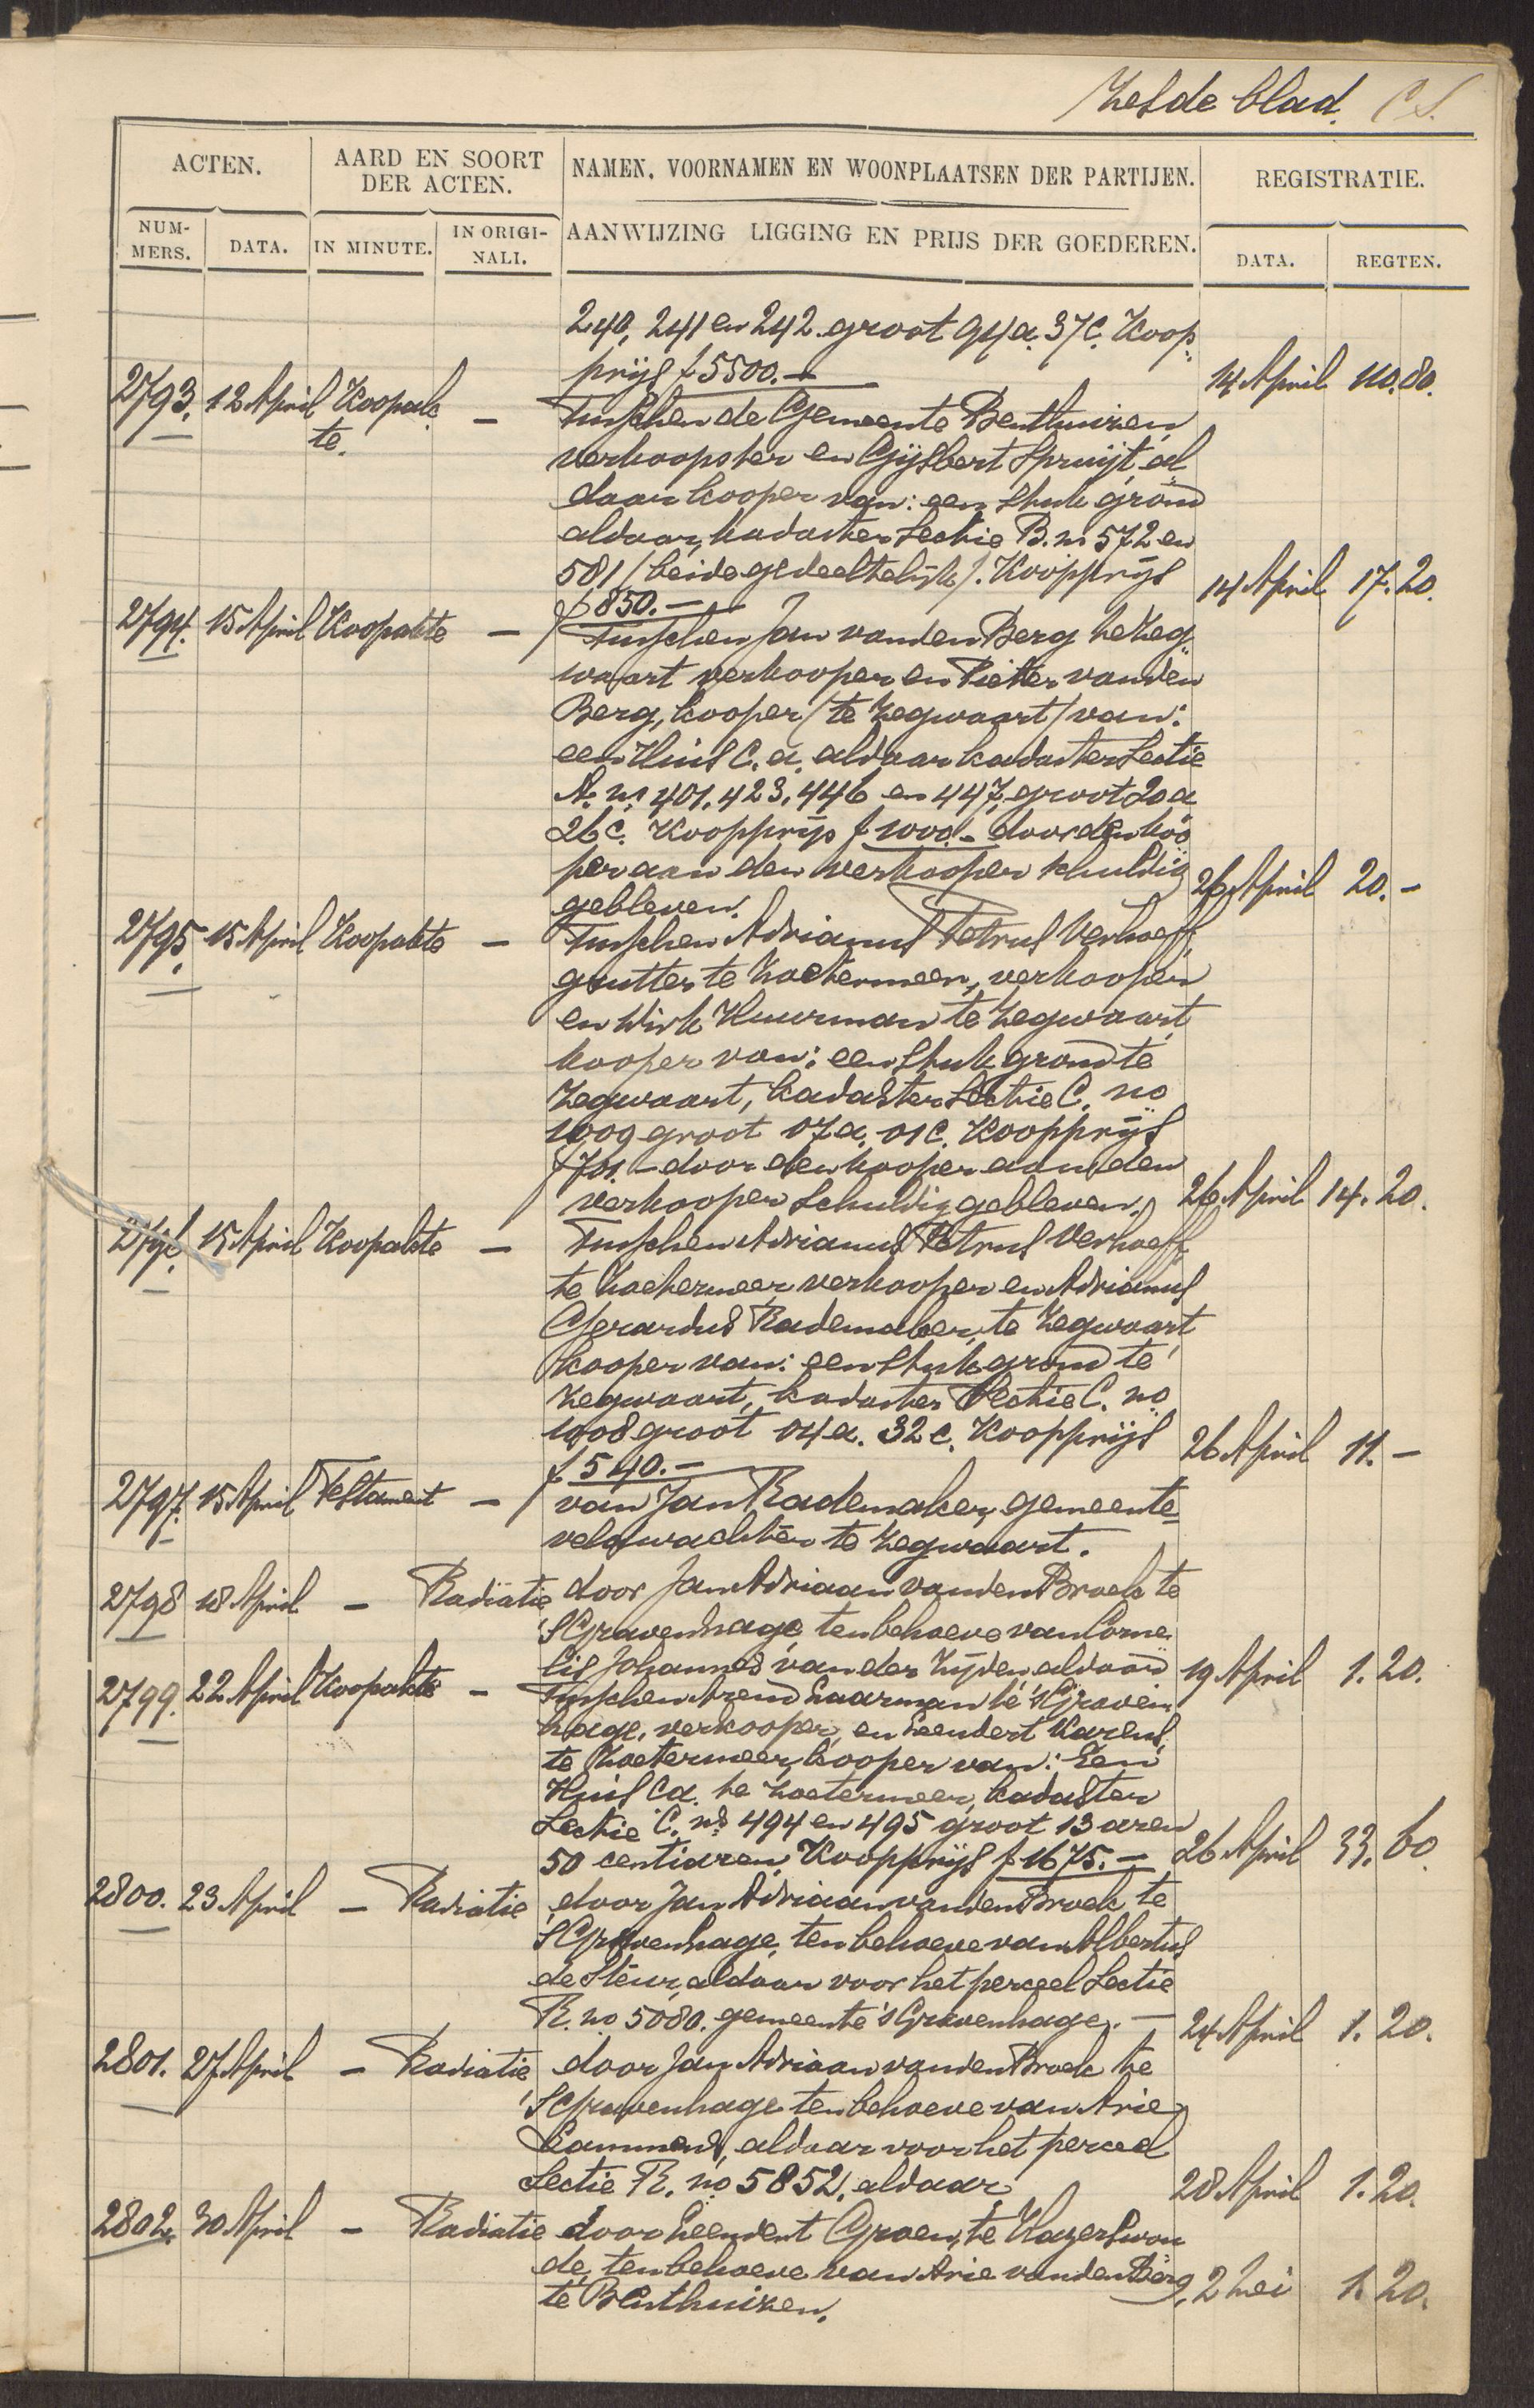 Zesde blad. CS.
ACTEN.
AARD EN SOORT
DER ACTEN.
NAMEN, VOORNAMEN EN WOONPLAATSEN DER PARTIJEN.
REGISTRATIE.
NUM-
MERS.
DATA.
IN MINUTE.
IN ORIGI-
NALI.
AANWIJZING LIGGING EN PRIJS DER GOEDEREN.
DATA.
REGTEN.
240, 241 en 242. groot 94 a. 37 C. Koop
prijs f 5500.— 14 April 110.80.
2793. 12 April Koopak — Tusschen de Gemeente Benthuizen,
te.
verkoopster en Gijsbert Spruijt, al
daar kooper van: een Stuk grond
aldaar, kadaster Sectie B. no 572 en
581 (beide gedeeltelijk). Koopprijs
f 850.— 14 April 17.20.
2794. 15 April Koopakte — Tusschen Jan van den Berg te Zeg
waart verkooper en Pieter van den
Berg, kooper (te Zegwaart) van:
een Huis C.a. aldaar kadaster Sectie
A. no 401, 423, 446 en 447, groot 20 a
26 C. Koopprijs f 1000.— door den koo
per aan den verkooper schuldig
gebleven. 26 April 20.—
2795. 15 April Koopakte — Tusschen Adrianus Petrus Verhoeff,
grutter te Zoetermeer, verkooper
en Dirk Huurman te Zegwaart,
kooper van: een Stuk grond te
Zegwaart, kadaster Sectie C. no
1009 groot 07 a. 01 C. Koopprijs
f 701.— door den kooper aan den
verkooper schuldig gebleven. 26 April 14.20.
2796. 15 April Koopakte — Tusschen Adrianus Petrus Verhoeff,
te Zoetermeer verkooper en Adrianus
Gerardus Rademaker, te Zegwaart,
kooper van: een Stuk grond te
Zegwaart, kadaster Sectie C. no
1008 groot 04 a. 32 C. Koopprijs
f 540.— 26 April 11.—
2797. 15 April Testament — van Jan Rademaker, gemeente
veldwachter te Zegwaart.
2798 18 April — Radiatie door Jan Adriaan van den Broek te
'SGravenhage, ten behoeve van Corne
lis Johannes van der Zijden aldaar 19 April 1.20.
2799. 22 April Koopakte — Tusschen Arend Haarman te 'sGraven
hage, verkooper, en Leendert Karens,
te Zoetermeer, kooper van: Een
Huis Ca. te Zoetermeer, kadaster
Sectie C. no 494 en 495 groot 13 aren
50 centiaren. Koopprijs f 1675.— 26 April 33.60.
2800. 23 April — Radiatie door Jan Adriaan van den Broek, te
'SGravenhage, ten behoeve van Albertus
de Steur, aldaar voor het perceel Sectie
R. no 5080. gemeente 'sGravenhage. — 24 April 1.20.
2801. 27 April — Radiatie door Jan Adriaan van den Broek te
'SGravenhage ten behoeve van Arie
Lammens, aldaar voor het perceel
Sectie R. no 5852. aldaar 28 April 1.20.
2802. 30 April — Radiatie door Leendert Groen, te Hazerswou
de, ten behoeve van Arie van den Berg,
te Benthuizen. 2 Mei 1.20.